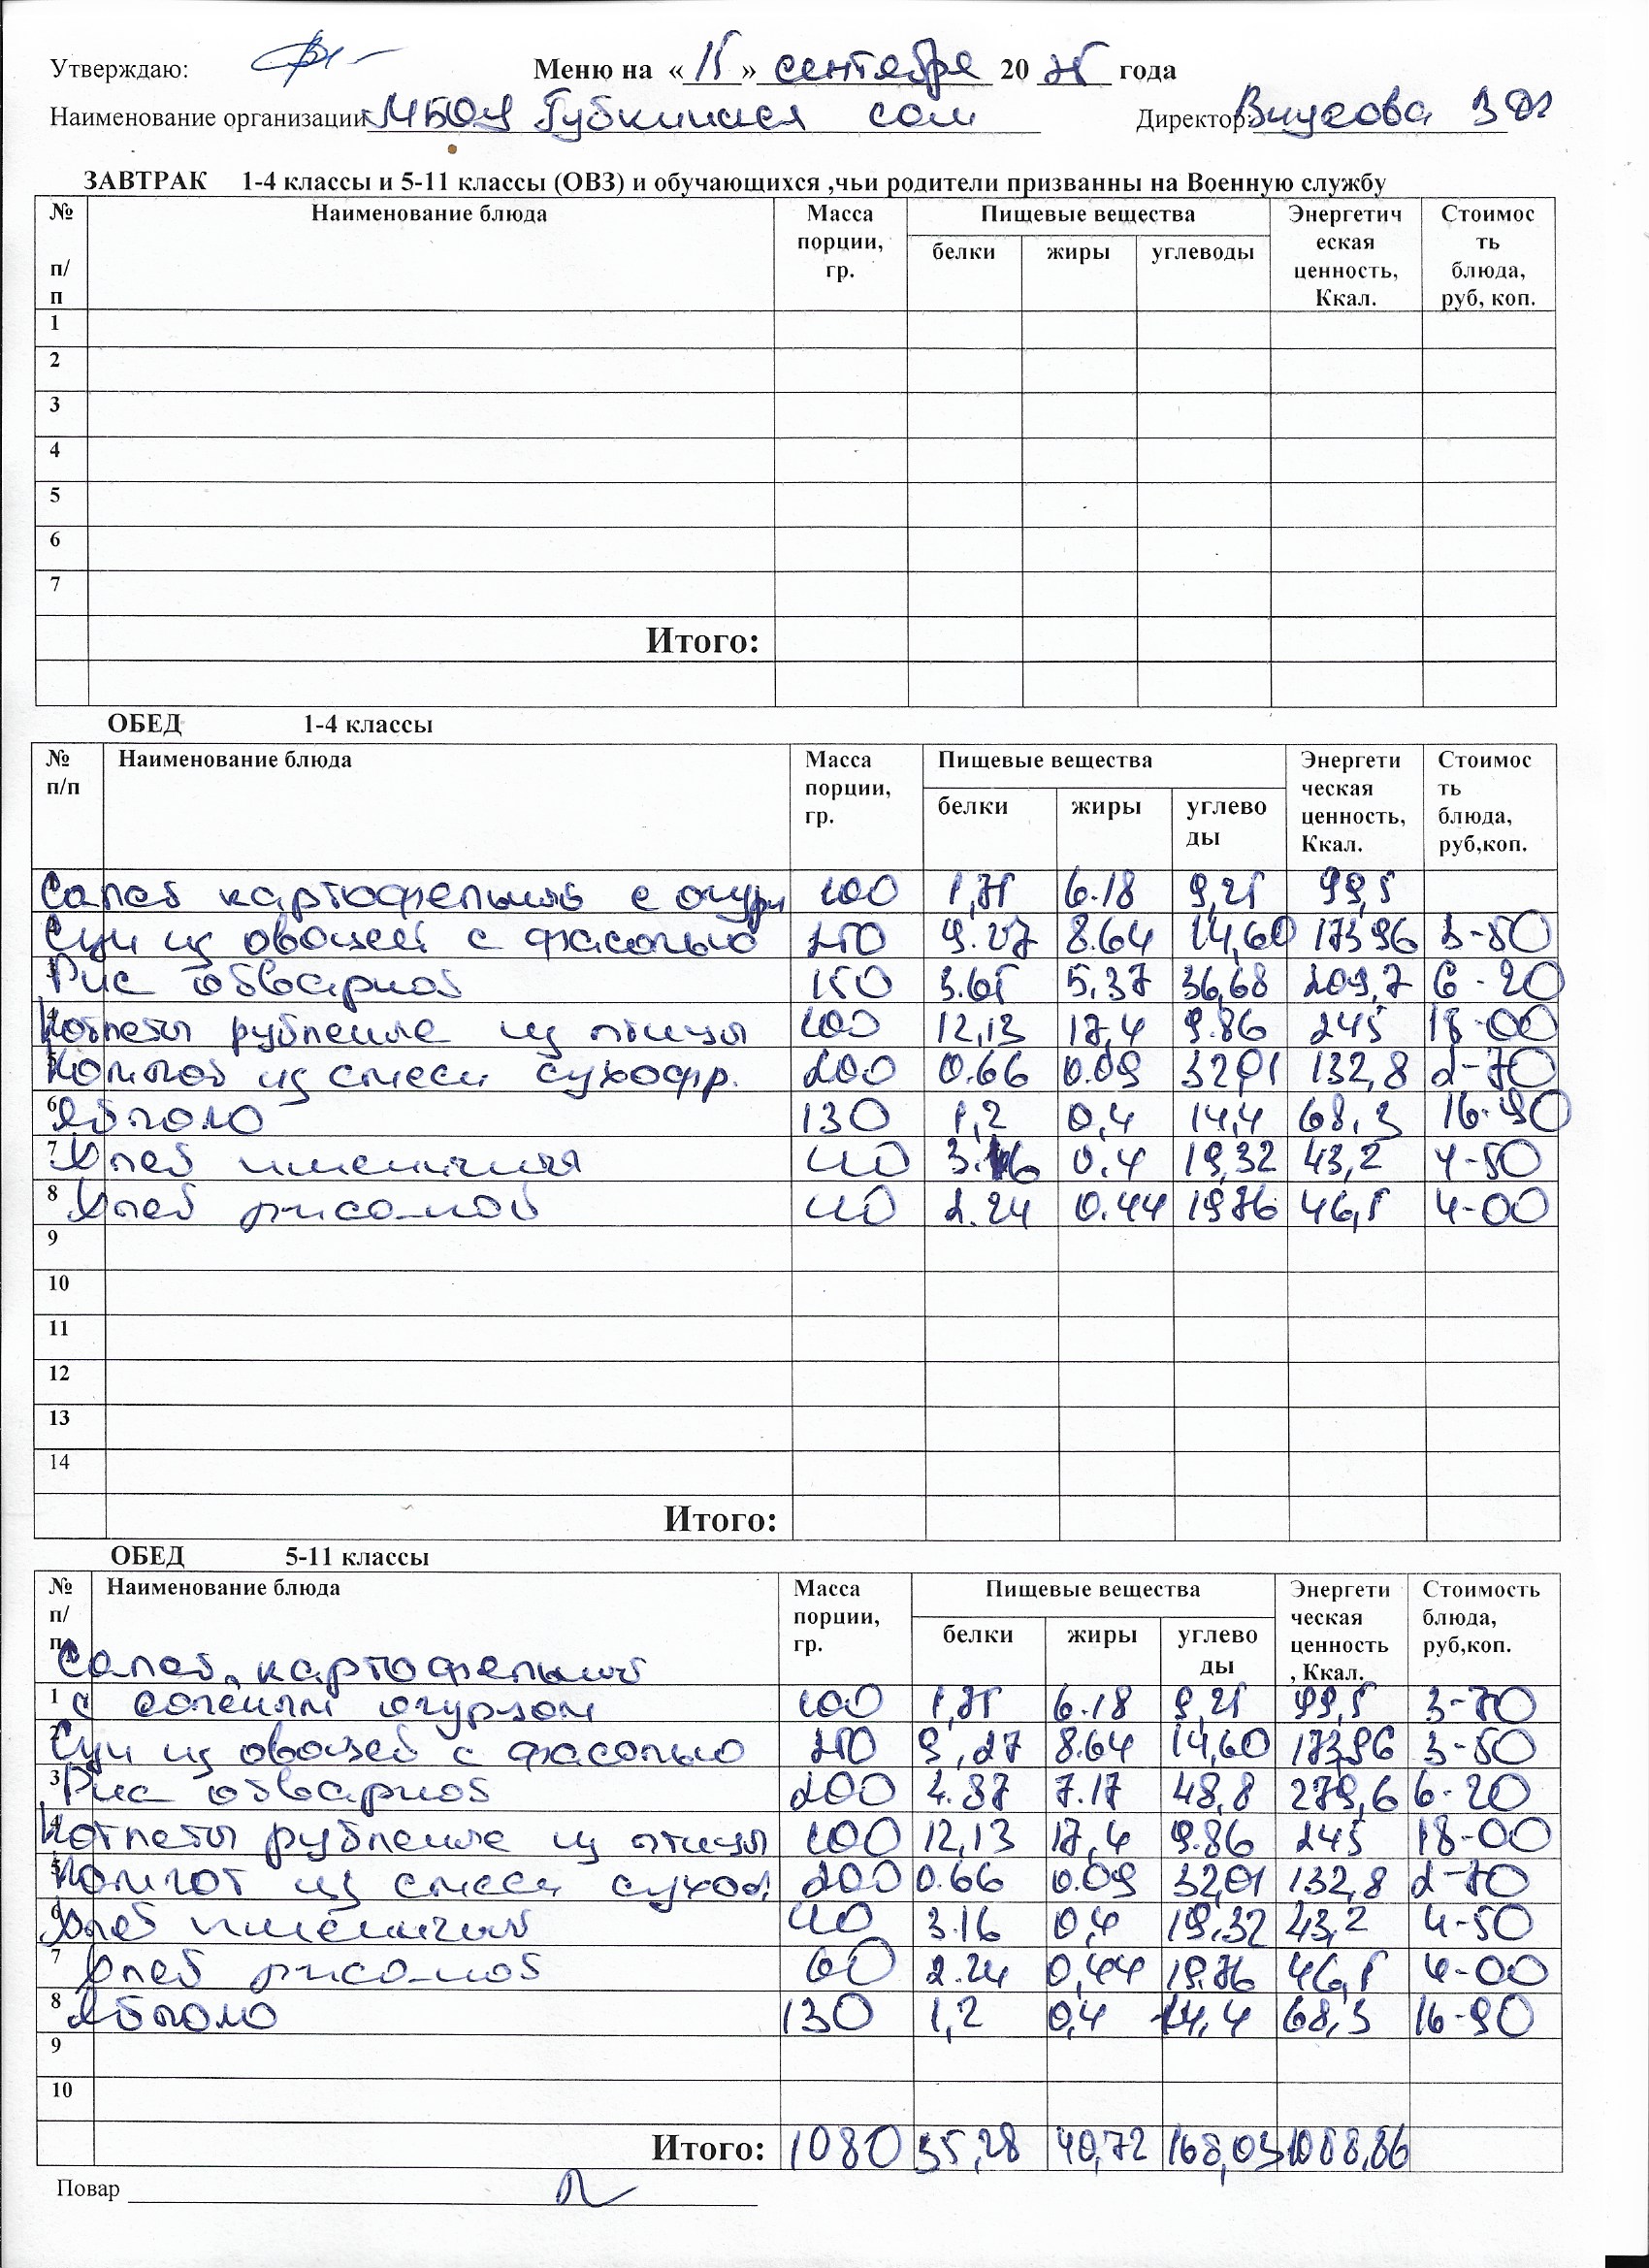 Утверждаю: Меню на «15» сентября 2025 года
Наименование организации МБОУ Губкинская сош Директор:
ЗАВТРАК 1-4 классы и 5-11 классы (ОВЗ) и обучающихся ,чьи родители призванны на Военную службу
№ п/п Наименование блюда Масса порции, гр. Пищевые вещества Энергетическая ценность, Ккал. Стоимость блюда, руб, коп.
белки жиры углеводы
1
2
3
4
5
6
7
Итого:
ОБЕД 1-4 классы
№ п/п Наименование блюда Масса порции, гр. Пищевые вещества Энергетическая ценность, Ккал. Стоимость блюда, руб,коп.
белки жиры углеводы
Салат картофельный с огурц 100 1,75 6.18 9,25 99,5
Суп из овощей с фасолью 250 9.27 8.64 14,60 173,96 3-50
3 Рис отварной 150 3.65 5,37 36,68 209,7 6-20
4 Котлеты рубленые из птицы 100 12,13 17,4 9.86 245 18-00
5 Компот из смеси сухофр. 200 0.66 0.09 32,01 132,8 2-70
6 Яблоко 130 1,2 0,4 14,4 68,3 16-90
7 Хлеб пшеничный 40 3.16 0.4 19,32 43,2 4-50
8 Хлеб ржаной 40 2.24 0.44 19,76 46,5 4-00
9
10
11
12
13
14
Итого:
ОБЕД 5-11 классы
№ п/п Наименование блюда Масса порции, гр. Пищевые вещества Энергетическая ценность, Ккал. Стоимость блюда, руб,коп.
белки жиры углеводы
Салат картофельный
1 с соленым огурцом 100 1,75 6.18 9,25 99,5 3-70
2 Суп из овощей с фасолью 250 9,27 8.64 14,60 173,96 3-50
3 Рис отварной 200 4.87 7.17 48,8 279,6 6-20
4 Котлеты рубленые из птицы 100 12,13 17,4 9.86 245 18-00
5 Компот из смеси сухоф. 200 0.66 0.09 32,01 132,8 2-70
6 Хлеб пшеничный 40 3.16 0,4 19,32 43,2 4-50
7 Хлеб ржаной 60 2.24 0,44 19.76 46,5 4-00
8 Яблоко 130 1,2 0,4 14,4 68,3 16-90
9
10
Итого: 1080 35,28 40,72 168,03 1088,86
Повар